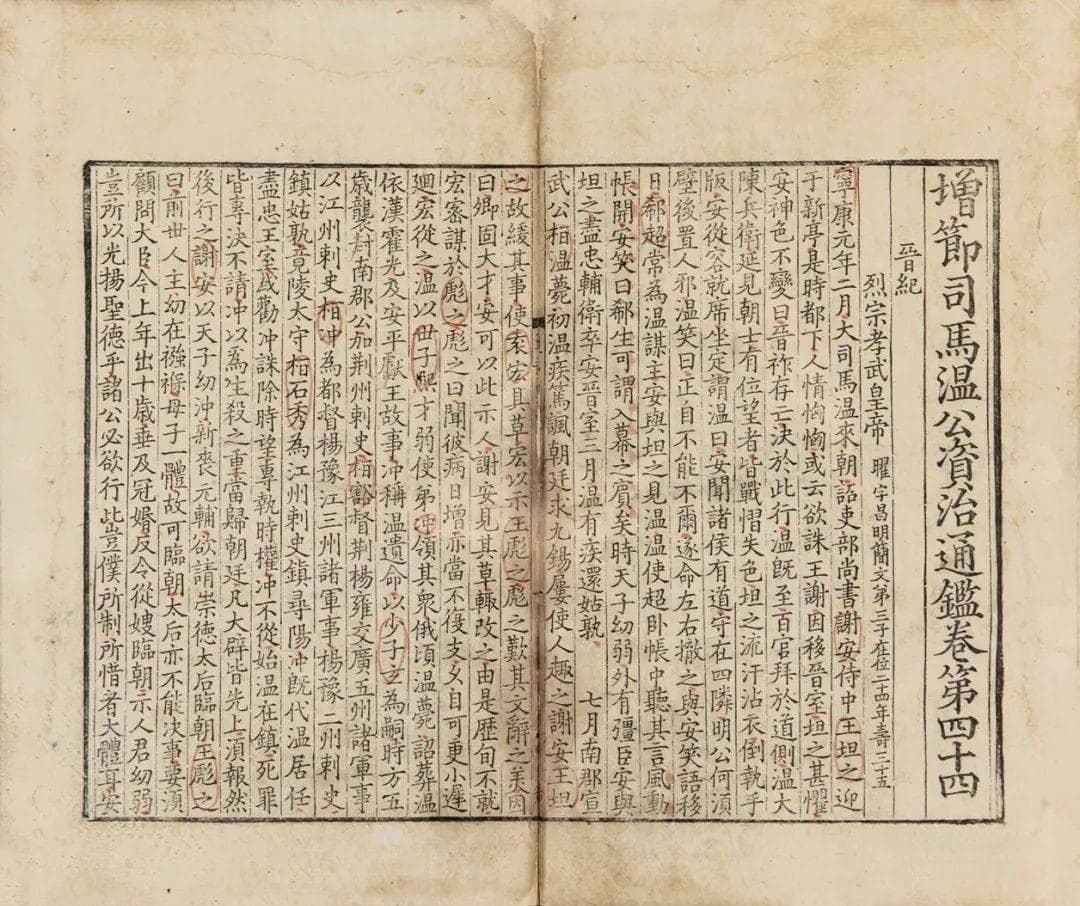 增節司馬温公資治通鑑卷第四十四
晉紀
烈宗孝武皇帝 曜字昌明簡文第三子在位二十四年壽三十五
寧康元年二月大司馬温來朝詔吏部尚書謝安侍中王坦之迎
于新亭是時都下人情恟恟或云欲誅王謝因移晉室坦之甚懼
安神色不變曰晉祚存亡決於此行温既至百官拜於道側温大
陳兵衛延見朝士有位望者皆戰慴失色坦之流汗沾衣倒執手
版安從容就席坐定謂温曰安聞諸侯有道守在四隣明公何湏
壁後置人邪温笑曰正自不能不爾遂命左右撤之與安笑語移
日郗超常為温謀主安與坦之見温温使超卧帳中聽其言風動
帳開安笑曰郗生可謂入幕之賔矣時天子幼弱外有彊臣安與
坦之盡忠輔衛卒安晉室三月温有疾還姑孰 七月南郡宣
武公桓温薨初温疾篤諷朝廷求九錫屢使人趣之謝安王坦
之故緩其事使袁宏具草宏以示王彪之彪之歎其文辭之美因
曰卿固大才安可以此示人謝安見其草輙改之由是歴旬不就
宏宻謀於彪之彪之曰聞彼病日增亦當不復支久自可更小遲
廻宏從之温以世子熈才弱使弟冲領其衆俄頃温薨詔葬温
依漢霍光及安平獻王故事冲稱温遺命以少子玄為嗣時方五
歳襲封南郡公加荆州刺史桓豁督荆楊雍交廣五州諸軍事
以江州刺史桓冲為都督楊豫江三州諸軍事楊豫二州刺史
鎮姑孰竟陵太守桓石秀為江州刺史鎮尋陽冲既代温居任
盡忠王室或勸冲誅除時望專執時權冲不從始温在鎮死罪
皆專決不請冲以為生殺之重當歸朝廷凡大辟皆先上湏報然
後行之謝安以天子幼冲新喪元輔欲請崇德太后臨朝王彪之
曰前世人主幼在襁褓母子一體故可臨朝太后亦不能決事要湏
顧問大臣今上年出十歳垂及冠婚反令從嫂臨朝示人君幼弱
豈所以光揚聖德乎諸公必欲行此豈僕所制所惜者大體耳安